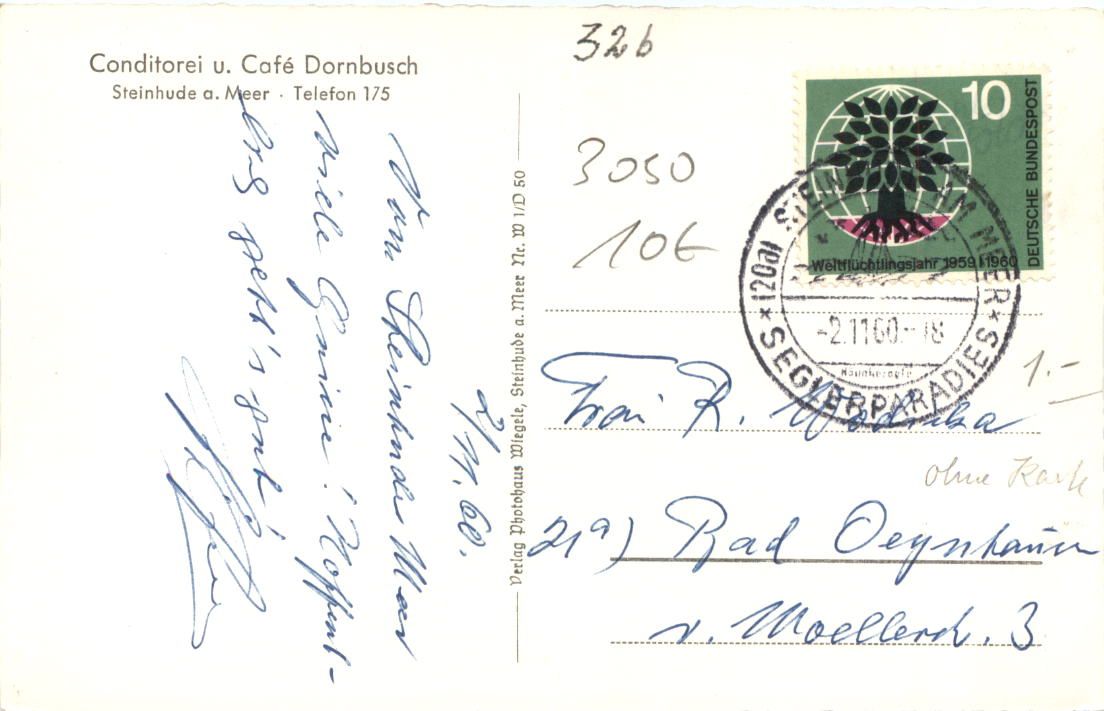 Conditorei u. Café Dornbusch
Steinhude a. Meer · Telefon 175
2/11.60.
Vom Steinhuder Meer
viele Grüsse! Hoffent-
lich geht's gut!
Verlag Photohaus Wiegele, Steinhude a. Meer Nr. W 1/D 50
32b
3050
10€
10
DEUTSCHE BUNDESPOST
Weltflüchtlingsjahr 1959/1960
(20a) STEINHUDE AM MEER
-2.11.60.-18
* SEGLERPARADIES *
1.-
Frau R.
ohne Karte
21a) Bad Oeynhausen
v. Moellerstr. 3